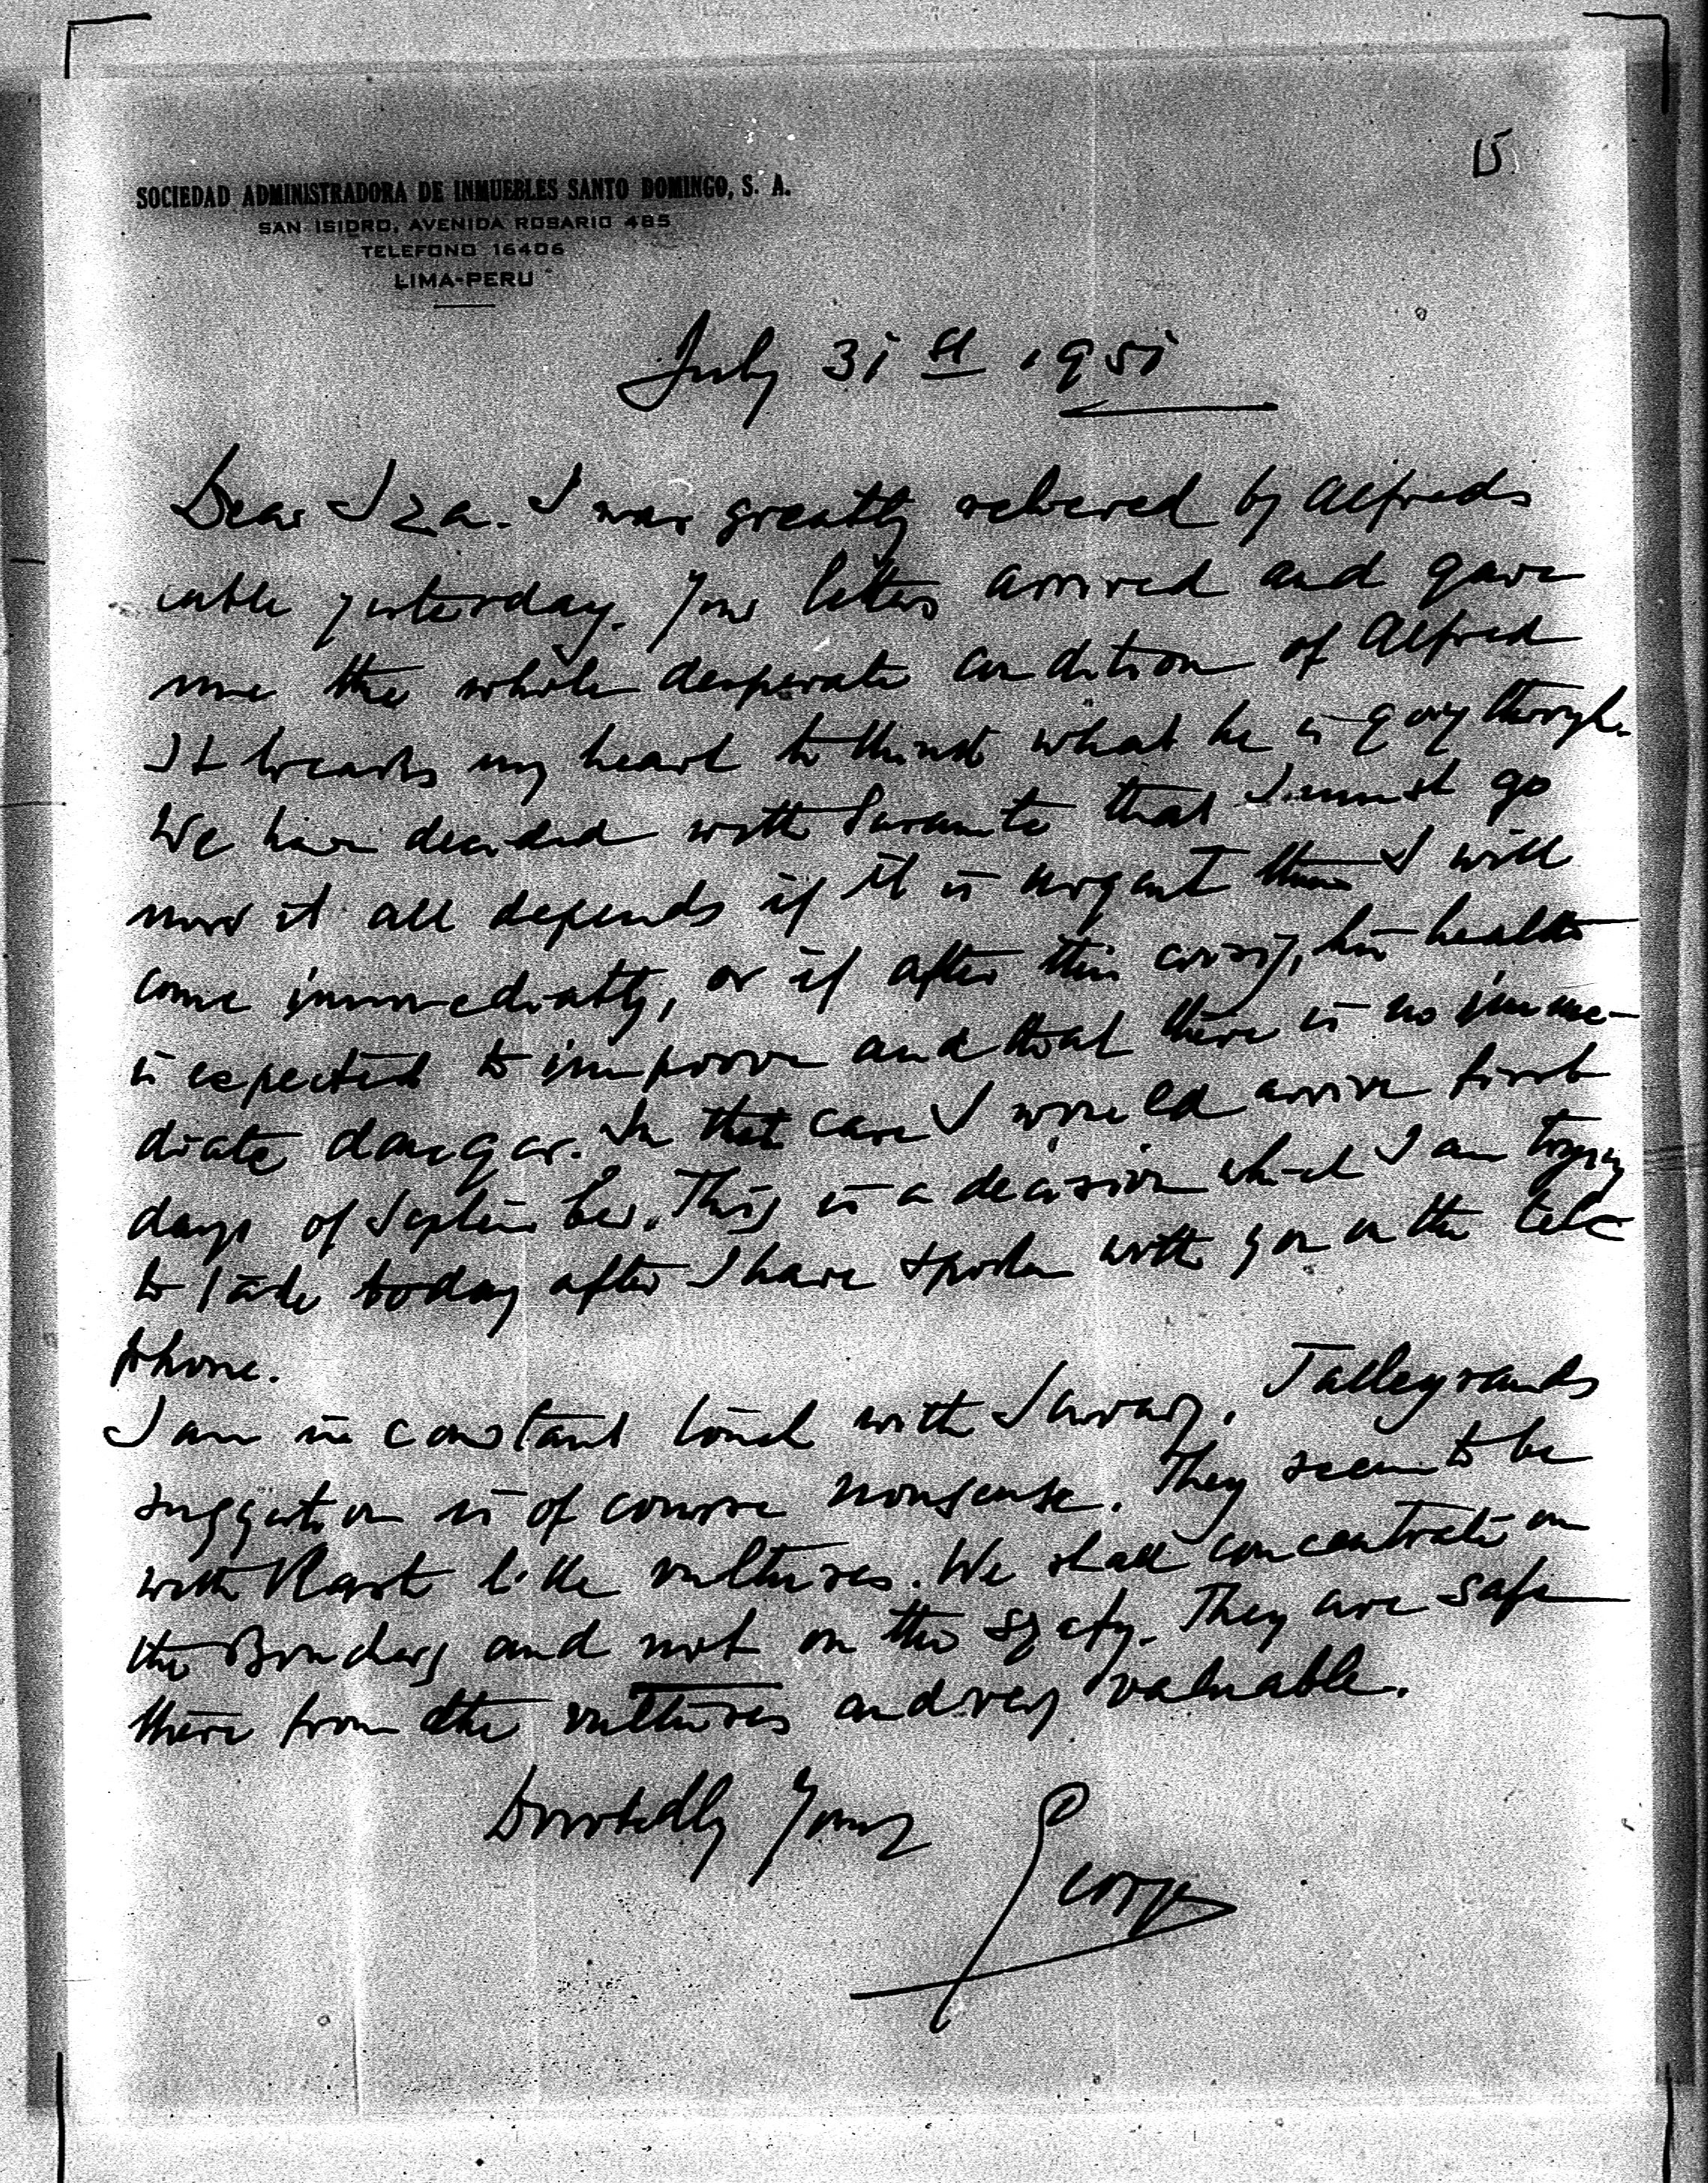 15
SOCIEDAD ADMINISTRADORA DE INMUEBLES SANTO DOMINGO, S. A.
SAN ISIDRO, AVENIDA ROSARIO 485
TELEFONO 16406
LIMA-PERU
July 31st 1951
Dear Iza. I was greatly relieved by Alfreds
cable yesterday. Your letters arrived and gave
me the whole desperate condition of Alfred
It breaks my heart to think what he is going through.
We have decided with that I must go
now it all depends if it is urgent then I will
come immediatly, or if after this crisis, his health
is expected to improove and that there is no imme-
diate dangar. In that case I would arrive first
days of September. This is a decision which I am trying
to take today after I have spoken with you on the tele
phone.
I am in constant touch with . Talleyrands
suggestion is of course nonsense. They seem to be
with like vultures. We shall concentrate on
the and not on the . They are safe
there from the vultures and very valuable.
Devotedly Yours George